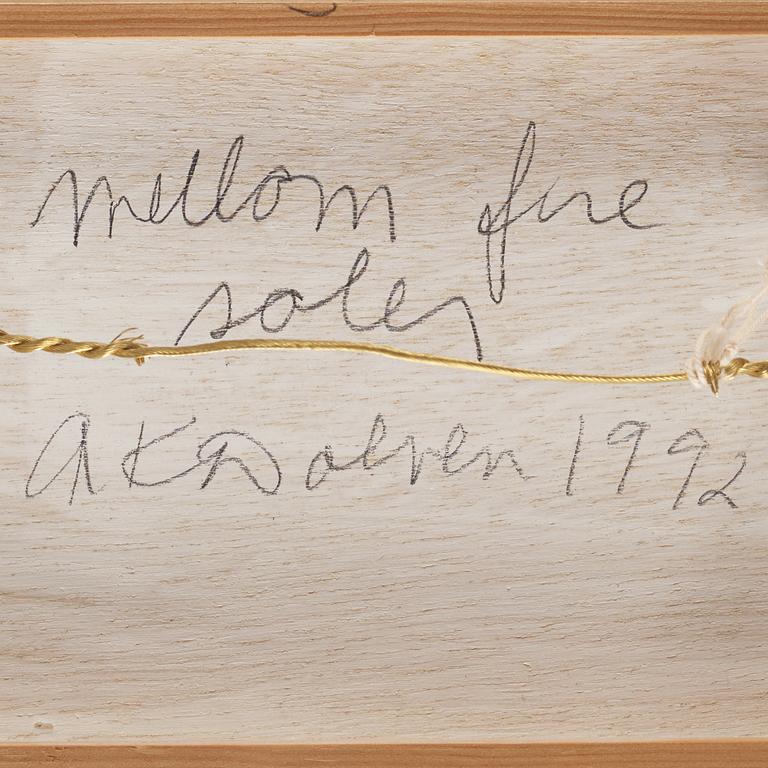 mellom fire
soler
AK Dolven 1992